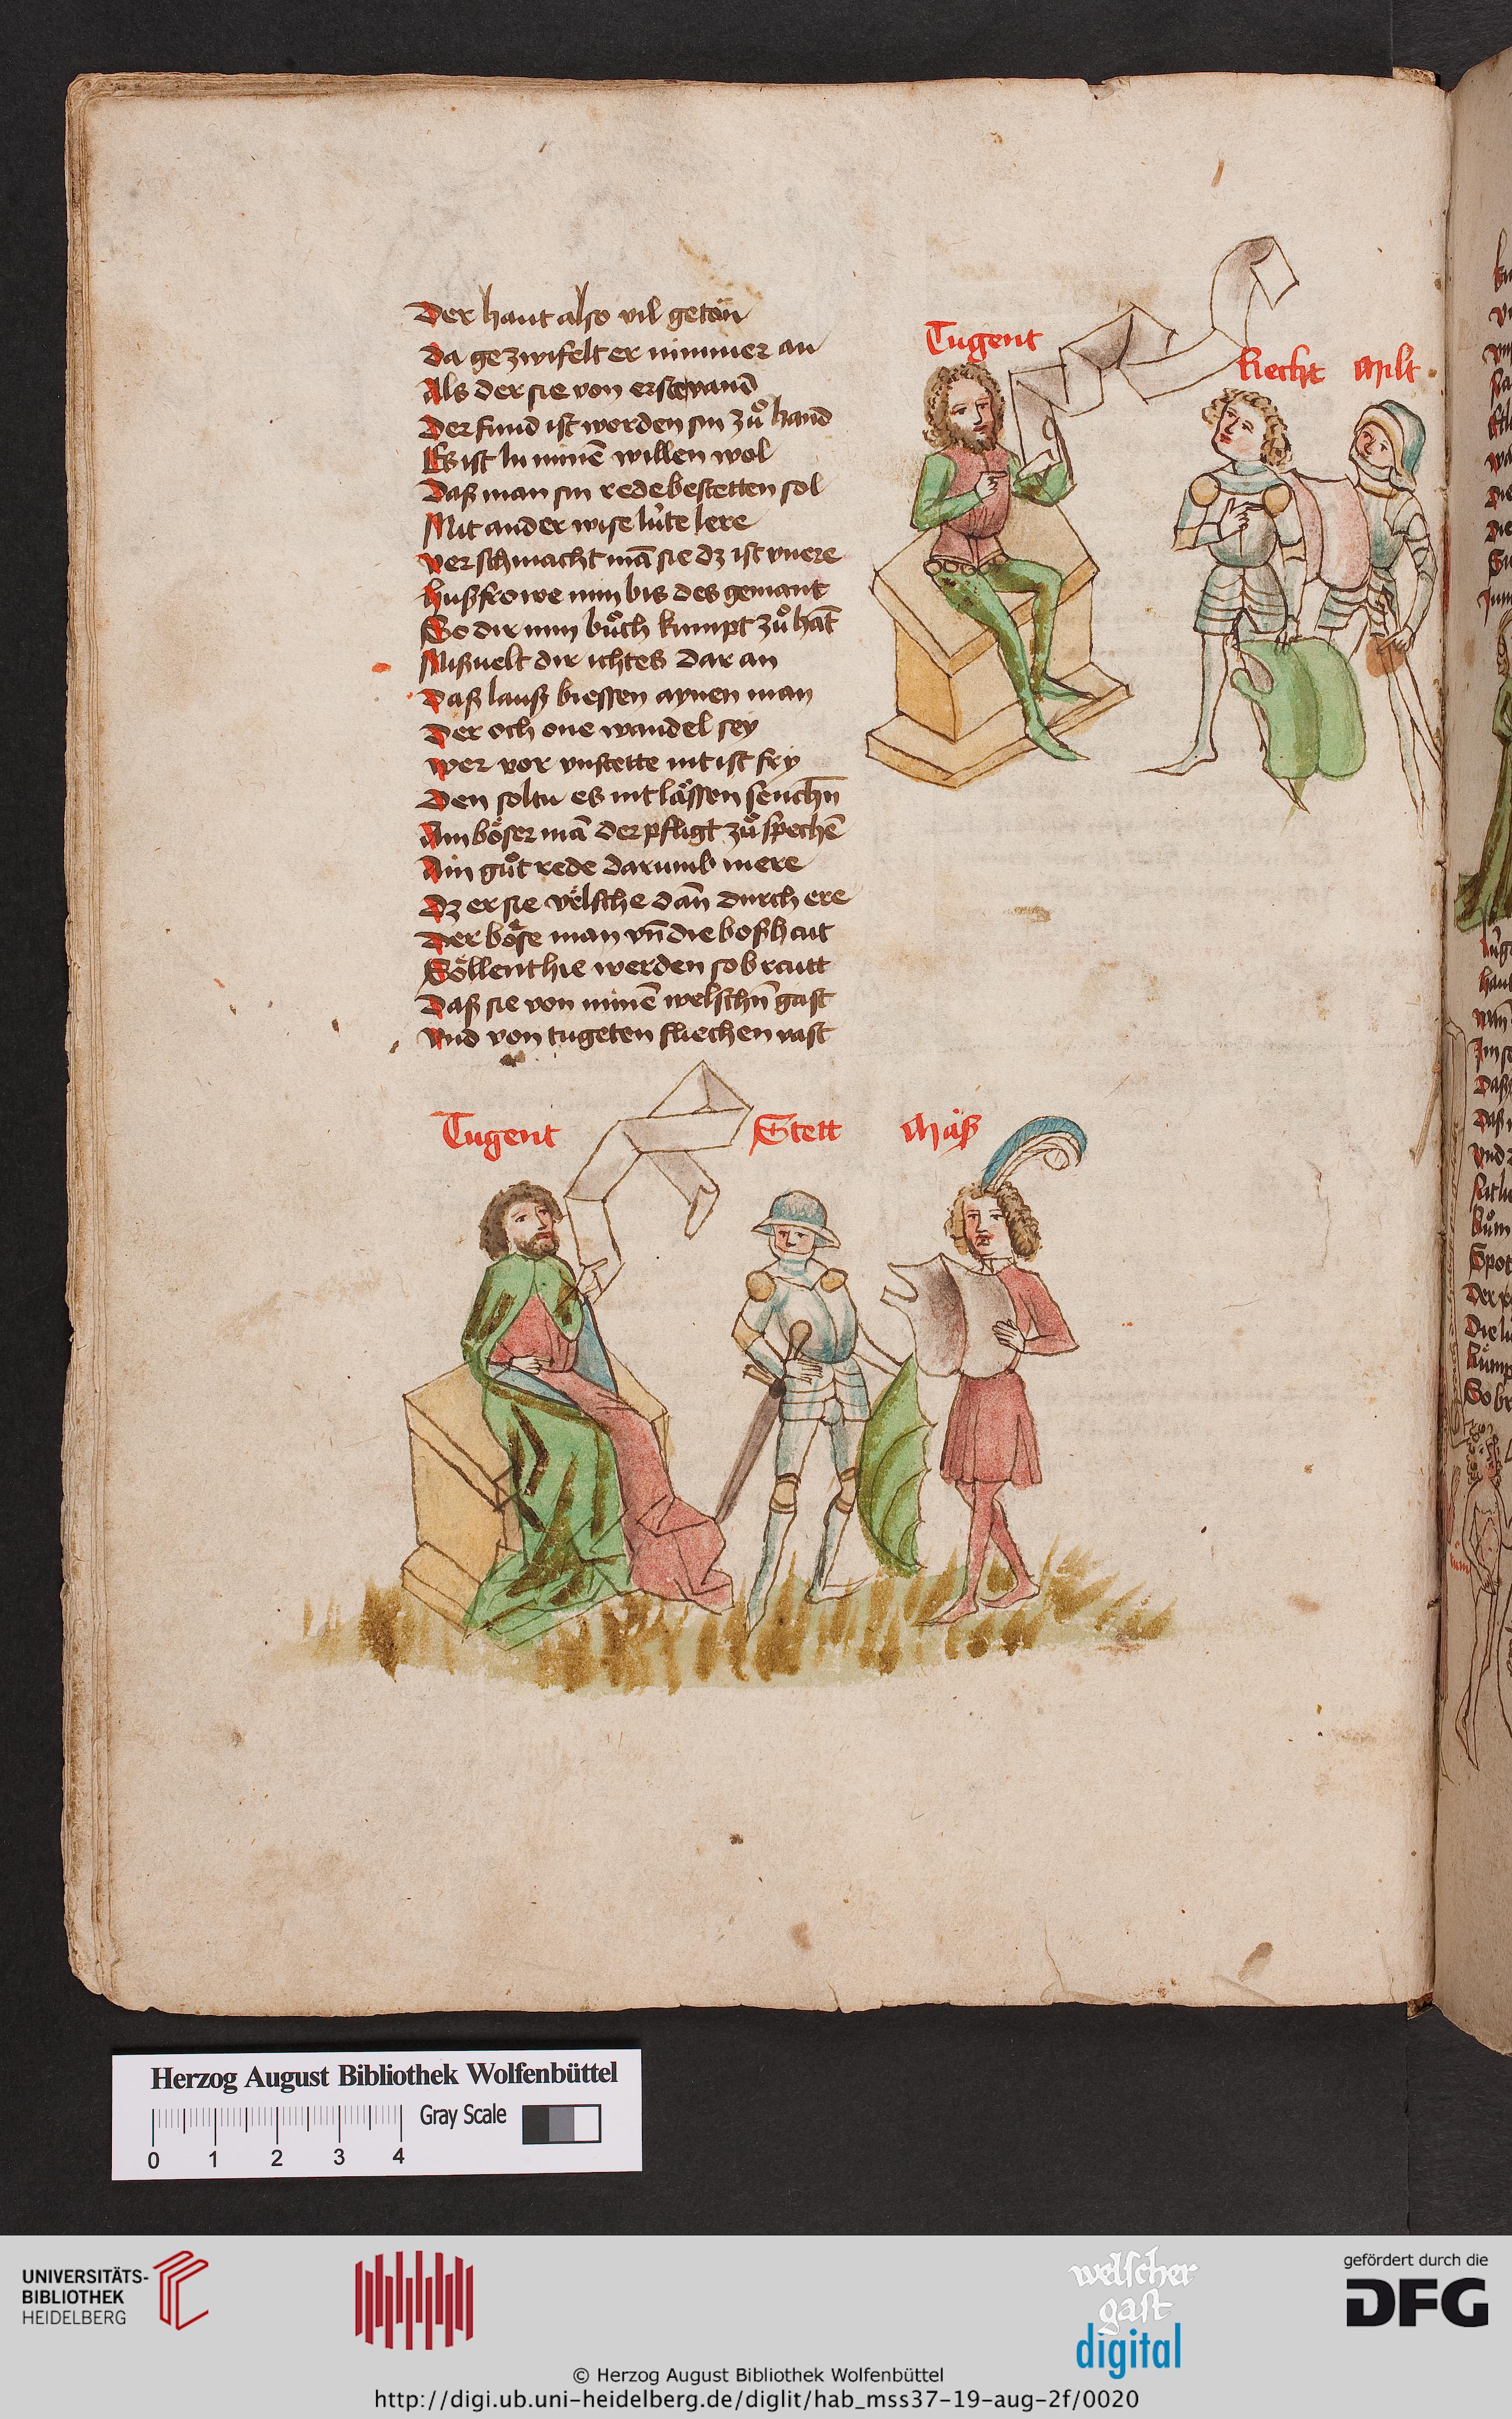 Der haut also vil getön
Da gezwifelt er nimmer an
Als der sie von erste vand̄
Der fund ist worden sin zuͦ hand
Es ist in minē willen wol
Daß man sin rede bestetten sol
Mit ander wise lüte lere
verschmacht mā sie dz ist vnere
hußfrowe min bis des gemant
So dir min buͦch kumpt zuͦ hāt
Mißuelt dir ichtes dar an
Daß lauß biessen aynen man
Der och one wandel sey
wer vor vnstette nit ist fry
Den soltu es nit laͤssen senchn̄
Ain böser mā der pfligt zuͦ spechē
Ain guͦt rede darumb mere
Dz er sie velsche dan̄ durch ere
Der böse man vn̄ die boßhait
Söllent hie werden so brautt
Daß sie von minē welschn̄ gast
Vnd von tugeten fliechen vast
Tugent
Recht Milt
Tugent Stett Mäß
Herzog August Bibliothek Wolfenbüttel
Gray Scale
0 1 2 3 4
UNIVERSITÄTS-
BIBLIOTHEK
HEIDELBERG
welscher
gast
digital
gefördert durch die
DFG
© Herzog August Bibliothek Wolfenbüttel
http://digi.ub.uni-heidelberg.de/diglit/hab_mss37-19-aug-2f/0020